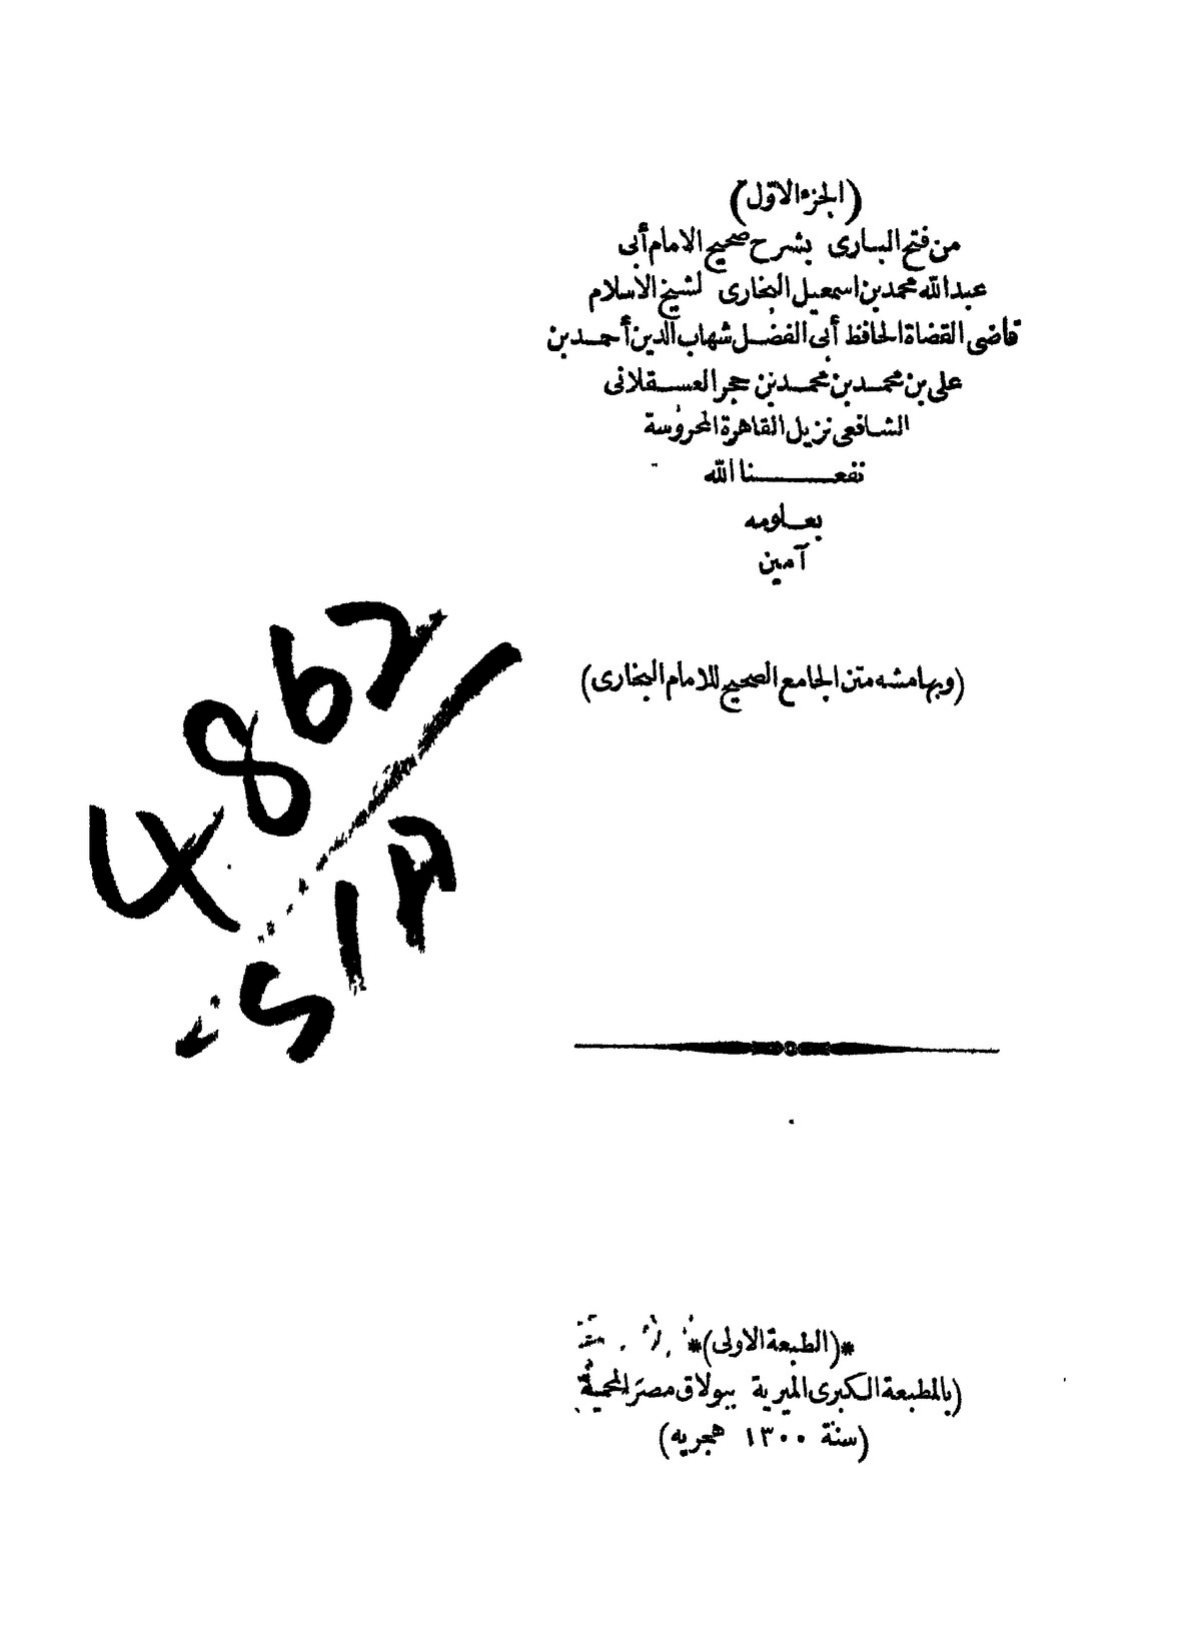 (الجزء الاوّل)
من فتح البارى بشرح صحيح الامام أبى
عبدالله محمد بن اسمعيل البخارى لشيخ الاسلام
قاضى القضاة الحافظ أبى الفضل شهاب الدين أحمد بن
على بن محمد بن محمد بن حجر العسقلانى
الشافعى نزيل القاهرة المحروسة
نفعنا الله
بعلومه
آمين
4862
(وبهامشه متن الجامع الصحيح للامام البخارى)
*(الطبعة الاولى)*
(بالمطبعة الكبرى الميرية ببولاق مصر المحمية)
(سنة ١٣٠٠ هجريه)